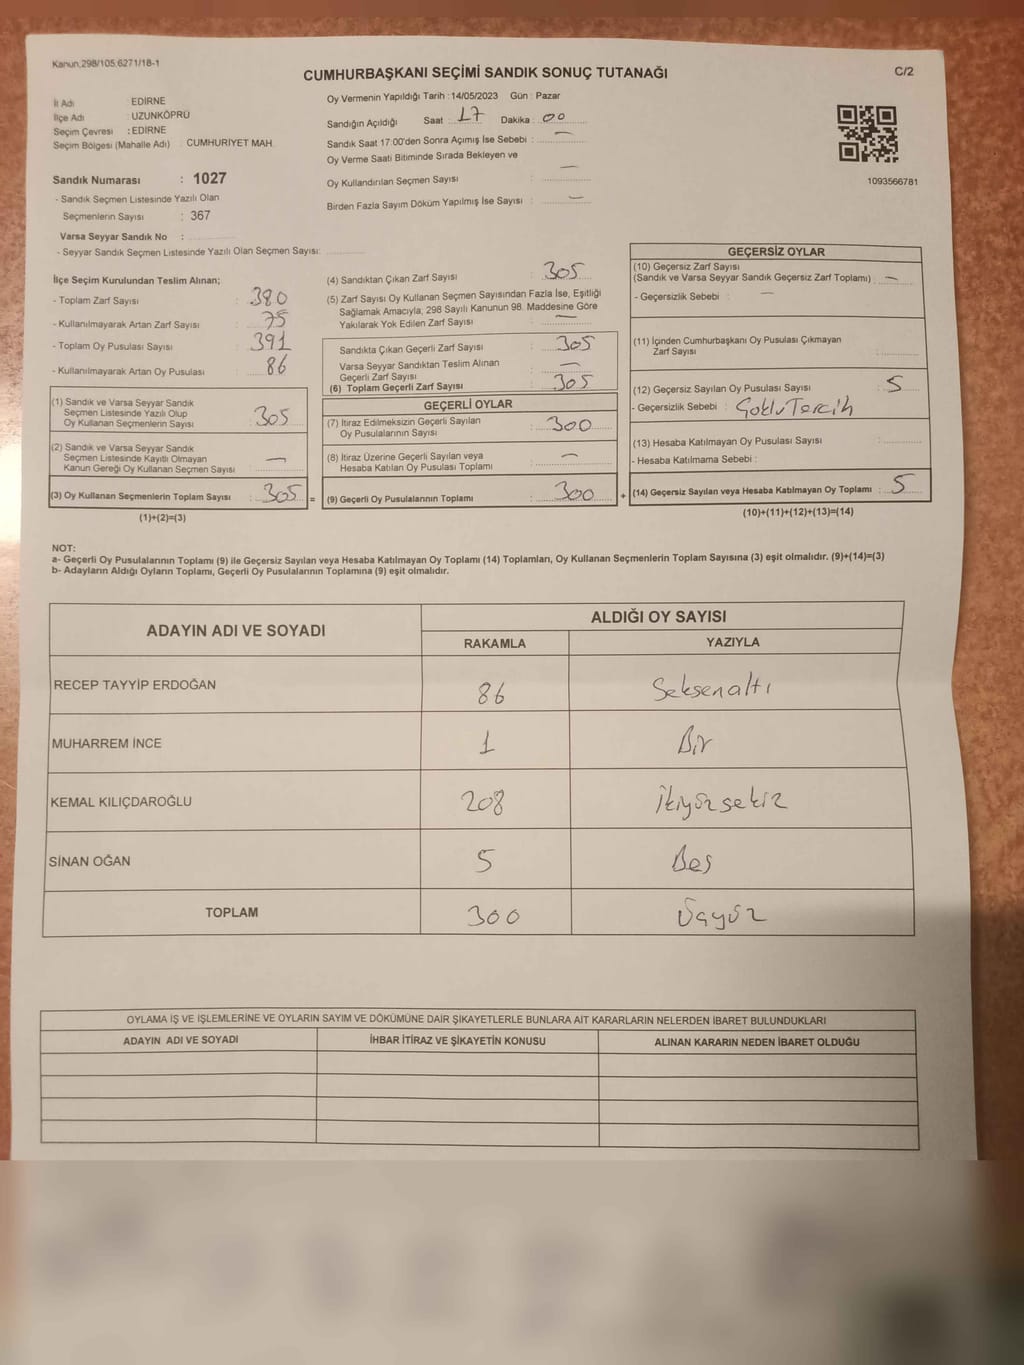 Kanun,298/105;6271/18-1
CUMHURBAŞKANI SEÇİMİ SANDIK SONUÇ TUTANAĞI
C/2
İl Adı EDİRNE
İlçe Adı : UZUNKÖPRÜ
Seçim Çevresi : EDİRNE
Seçim Bölgesi (Mahalle Adı) CUMHURİYET MAH.
Sandık Numarası : 1027
- Sandık Seçmen Listesinde Yazılı Olan
Seçmenlerin Sayısı : 367
Varsa Seyyar Sandık No :
- Seyyar Sandık Seçmen Listesinde Yazılı Olan Seçmen Sayısı:
Oy Vermenin Yapıldığı Tarih : 14/05/2023 Gün : Pazar
Sandığın Açıldığı Saat : 17 Dakika : 00
Sandık Saat 17.00'den Sonra Açımış İse Sebebi : —
Oy Verme Saati Bitiminde Sırada Bekleyen ve
Oy Kullandırılan Seçmen Sayısı : —
Birden Fazla Sayım Döküm Yapılmış İse Sayısı : —
1093566781
İlçe Seçim Kurulundan Teslim Alınan;
- Toplam Zarf Sayısı : 380
- Kullanılmayarak Artan Zarf Sayısı : 75
- Toplam Oy Pusulası Sayısı : 391
- Kullanılmayarak Artan Oy Pusulası : 86
(1) Sandık ve Varsa Seyyar Sandık
Seçmen Listesinde Yazılı Olup
Oy Kullanan Seçmenlerin Sayısı : 305
(2) Sandık ve Varsa Seyyar Sandık
Seçmen Listesinde Kayıtlı Olmayan
Kanun Gereği Oy Kullanan Seçmen Sayısı : —
(3) Oy Kullanan Seçmenlerin Toplam Sayısı : 305 =
(1)+(2)=(3)
(4) Sandıktan Çıkan Zarf Sayısı : 305
(5) Zarf Sayısı Oy Kullanan Seçmen Sayısından Fazla İse, Eşitliği
Sağlamak Amacıyla, 298 Sayılı Kanunun 98. Maddesine Göre
Yakılarak Yok Edilen Zarf Sayısı : —
Sandıkta Çıkan Geçerli Zarf Sayısı : 305
Varsa Seyyar Sandıktan Teslim Alınan
Geçerli Zarf Sayısı : —
(6) Toplam Geçerli Zarf Sayısı : 305
GEÇERLİ OYLAR
(7) İtiraz Edilmeksizin Geçerli Sayılan
Oy Pusulalarının Sayısı : 300
(8) İtiraz Üzerine Geçerli Sayılan veya
Hesaba Katılan Oy Pusulası Toplamı : —
(9) Geçerli Oy Pusulalarının Toplamı : 300 +
GEÇERSİZ OYLAR
(10) Geçersiz Zarf Sayısı
(Sandık ve Varsa Seyyar Sandık Geçersiz Zarf Toplamı) : —
- Geçersizlik Sebebi : —
(11) İçinden Cumhurbaşkanı Oy Pusulası Çıkmayan
Zarf Sayısı :
(12) Geçersiz Sayılan Oy Pusulası Sayısı : 5
- Geçersizlik Sebebi : Çoklu Tercih
(13) Hesaba Katılmayan Oy Pusulası Sayısı :
- Hesaba Katılmama Sebebi :
(14) Geçersiz Sayılan veya Hesaba Katılmayan Oy Toplamı : 5
(10)+(11)+(12)+(13)=(14)
NOT:
a- Geçerli Oy Pusulalarının Toplamı (9) ile Geçersiz Sayılan veya Hesaba Katılmayan Oy Toplamı (14) Toplamları, Oy Kullanan Seçmenlerin Toplam Sayısına (3) eşit olmalıdır. (9)+(14)=(3)
b- Adayların Aldığı Oyların Toplamı, Geçerli Oy Pusulalarının Toplamına (9) eşit olmalıdır.
ADAYIN ADI VE SOYADI ALDIĞI OY SAYISI
RAKAMLA YAZIYLA
RECEP TAYYİP ERDOĞAN 86 Seksenaltı
MUHARREM İNCE 1 Bir
KEMAL KILIÇDAROĞLU 208 İkiyüzsekiz
SİNAN OĞAN 5 Beş
TOPLAM 300 Üçyüz
OYLAMA İŞ VE İŞLEMLERİNE VE OYLARIN SAYIM VE DÖKÜMÜNE DAİR ŞİKAYETLERLE BUNLARA AİT KARARLARIN NELERDEN İBARET BULUNDUKLARI
ADAYIN ADI VE SOYADI İHBAR İTİRAZ VE ŞİKAYETİN KONUSU ALINAN KARARIN NEDEN İBARET OLDUĞU